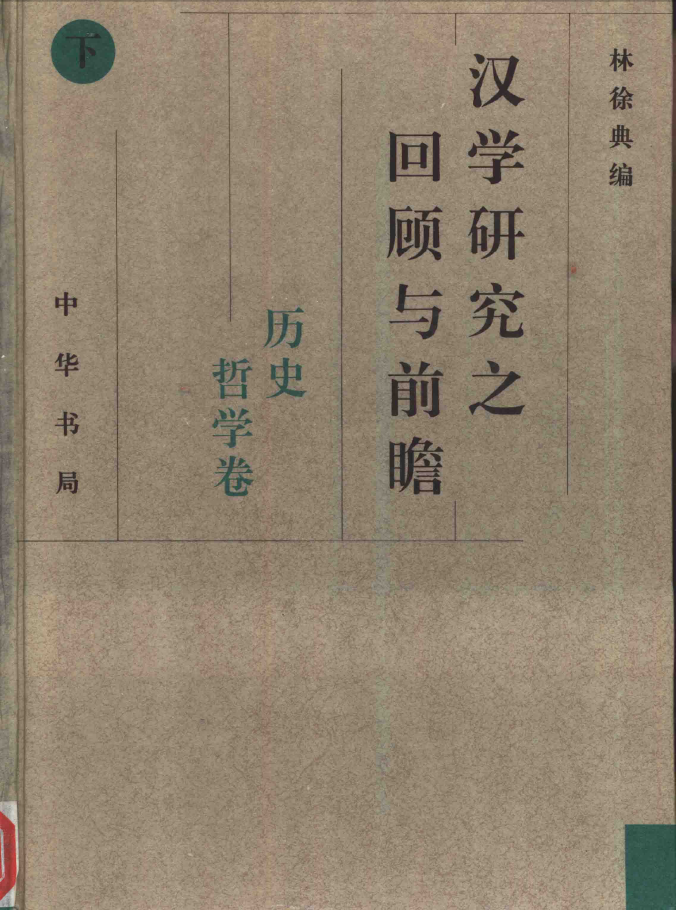 林徐典编
汉学研究之
回顾与前瞻
历史
哲学卷
下
中华书局